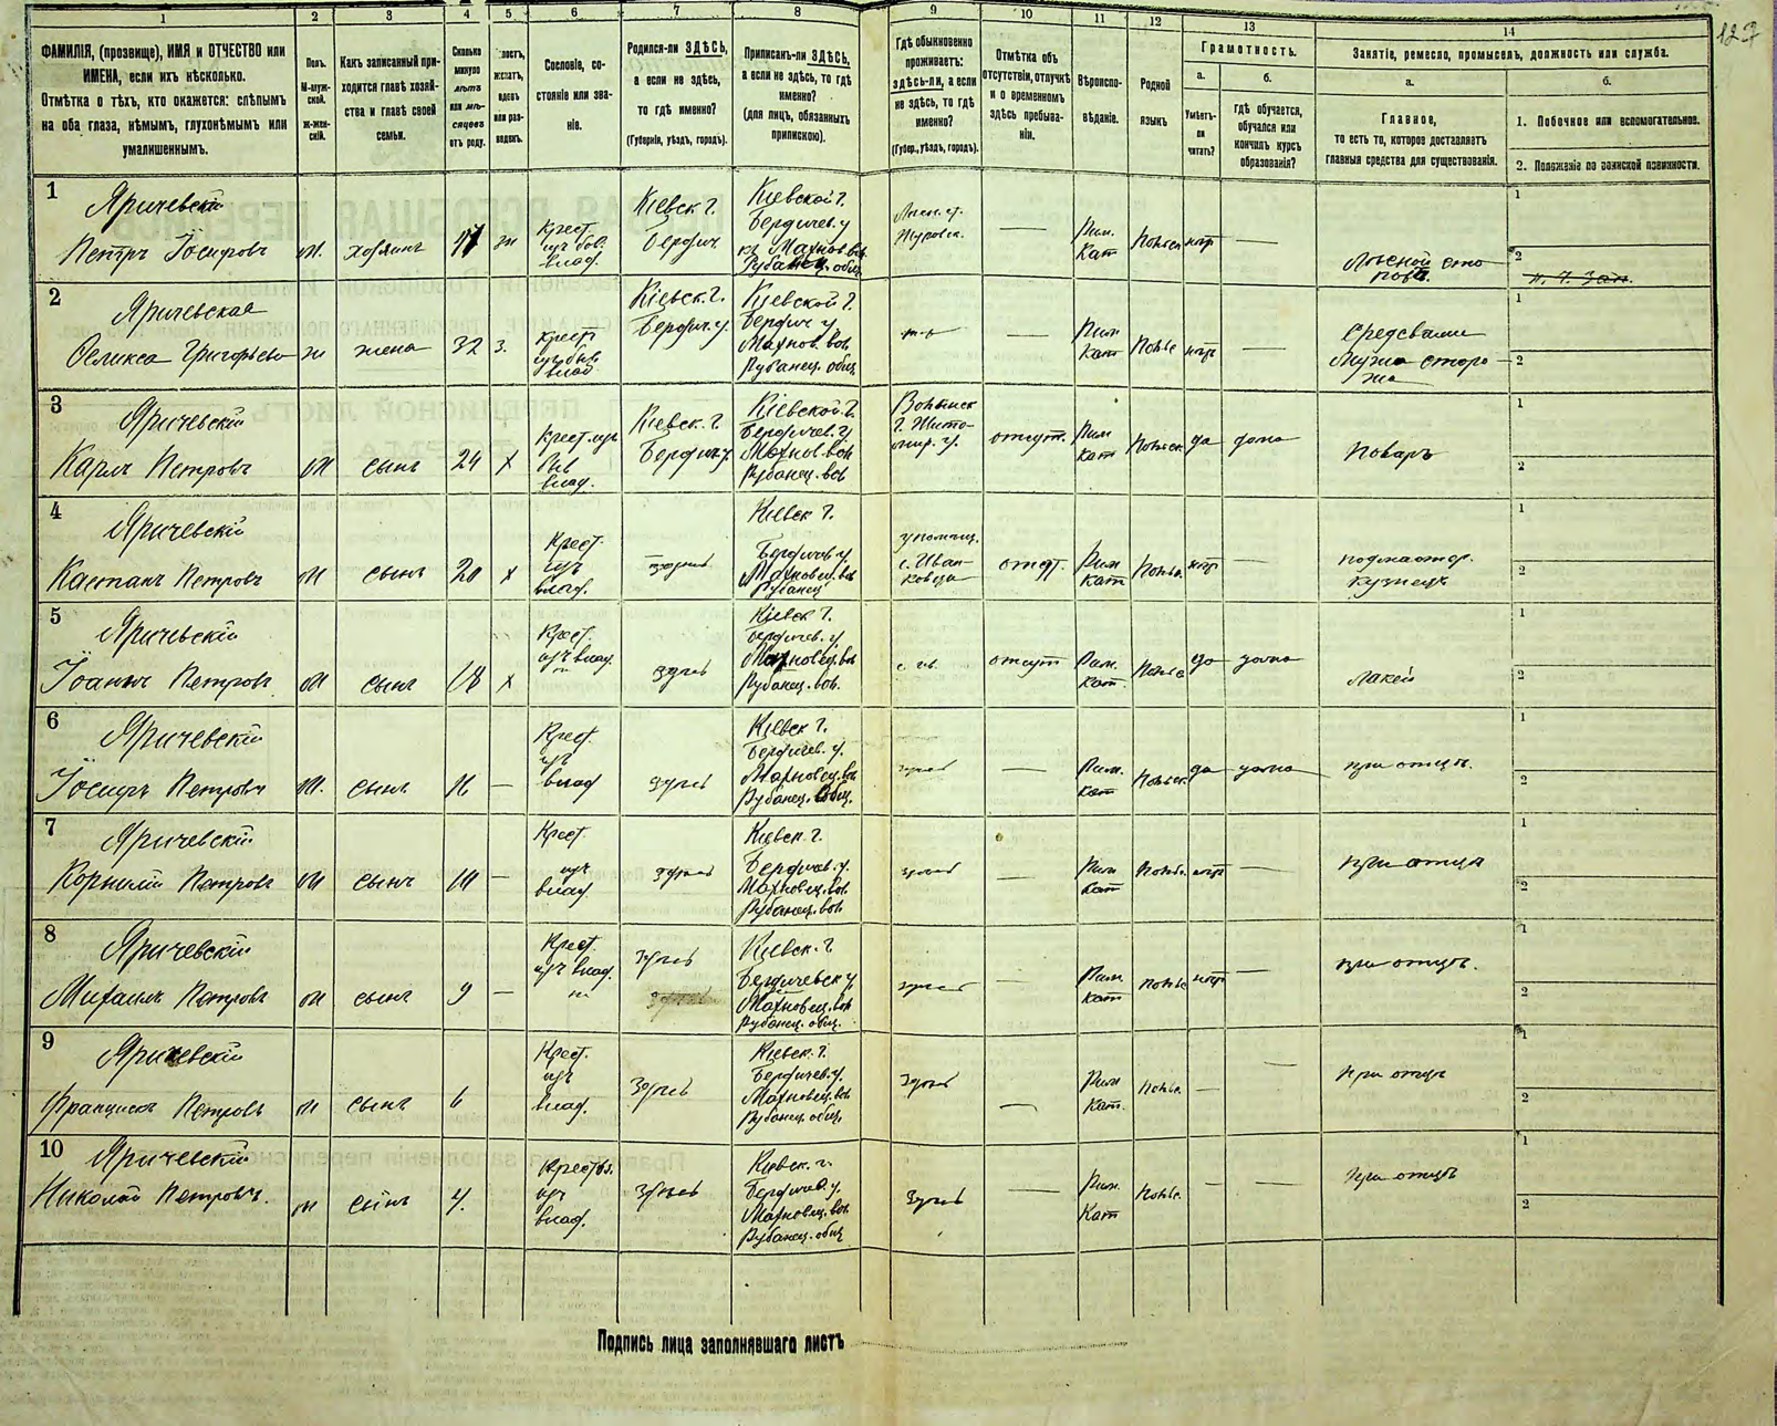 127
1 2 3 4 5 6 7 8 9 10 11 12 13 14
ФАМИЛІЯ, (прозвище), ИМЯ и ОТЧЕСТВО или
ИМЕНА, если ихъ нѣсколько.
Отмѣтка о тѣхъ, кто окажется: слѣпымъ
на оба глаза, нѣмымъ, глухонѣмымъ или
умалишеннымъ.
Полъ.
М-муж-
ской.
ж-жен-
скій.
Какъ записанный при-
ходится главѣ хозяй-
ства и главѣ своей
семьи.
Сколько
минуло
лѣтъ
или мѣ-
сяцевъ
отъ роду.
лостъ,
женатъ,
вдовъ
или раз-
веденъ.
Сословіе, со-
стояніе или зва-
ніе.
Родился-ли ЗДѢСЬ,
а если не здѣсь,
то гдѣ именно?
(Губернія, уѣздъ, городъ).
Приписанъ-ли ЗДѢСЬ,
а если не здѣсь, то гдѣ
именно?
(для лицъ, обязанныхъ
припискою).
Гдѣ обыкновенно
проживаетъ:
здѣсь-ли, а если
не здѣсь, то гдѣ
именно?
(Губер., уѣздъ, городъ).
Отмѣтка объ
отсутствіи, отлучкѣ
и о временномъ
здѣсь пребыва-
ніи.
Вѣроиспо-
вѣданіе.
Родной
языкъ
Грамотность.
а.
Умѣетъ-
ли
читать?
б.
Гдѣ обучается,
обучался или
кончилъ курсъ
образованія?
Занятіе, ремесло, промыселъ, должность или служба.
а.
Главное,
то есть то, которое доставляетъ
главныя средства для существованія.
б.
1. Побочное или вспомогательное.
2. Положеніе по воинской повинности.
1
Яричевскій
Петръ Іосифовъ м. хозяинъ
Крест.
изъ бов.
влад.
Кіевск г.
Бердич
Кіевской г.
Бердичев. у
Махнов. вол
Рубанец. общ
—
Рим.
Кат
Польск
нѣтъ —
Лѣсной сто
рожъ.
1
2
2
Яричевская
Феликса Григорьева ж жена 32 з.
Крест
изъ быв
влад
Кіевск. г.
Бердич. у.
Кіевской г.
Бердич у
Махнов. вол
Рубанец. общ
—
Рим
Кат
Польс нѣтъ —
Средсвами
Мужа сторо-
жа
1
2
3
Яричевскій
Карлъ Петровъ м сынъ 24 х
Крест. изъ
быв
влад.
Кіевск. г.
Бердич у
Кіевской г.
Бердичев. у
Махнов. вол
Рубанец. вол
Волынск
г. Жито-
мир. у.
отсут.
Рим
Кат
Польск да дома
Поваръ
1
2
4
Яричевскій
Каетанъ Петровъ м сынъ 20 х
Крест.
изъ
влад.
здѣсь
Кіевск г.
Бердичев у
Махновец. вол
Рубанец
с. Иван-
ковцы
отсут.
Рим
Кат
Польс. нѣтъ —
подмастер.
кузнецъ
1
2
5
Яричевскій
Іоаннъ Петровъ м сынъ 18 х
Крест.
изъ влад.
здѣсь
Кіевск г.
Бердичев. у
Махновец. вол
Рубанец. вол.
отсут
Рим.
Кат.
Польс да дома
Лакей
1
2
6
Яричевскій
Іосифъ Петровъ м. сынъ —
Крест.
изъ
влад
здѣсь
Кіевск г.
Бердичев. у.
Махновец. вол
Рубанец. общ.
здѣсь —
Рим.
Кат
Польск. да дома
при отцѣ.
1
2
7
Яричевскій
Корнилій Петровъ м сынъ —
Крест.
изъ
влад
здѣсь
Кіевск. г.
Бердичев. у.
Махновец. вол
Рубанец. вол
здѣсь —
Рим
Кат
Польс. нѣтъ —
при отцѣ
1
2
8
Яричевскій
Михаилъ Петровъ м сынъ 9 —
Крест.
изъ влад.
здѣсь
Кіевск. г
Бердичевск у
Махновец. вол
Рубанец. общ.
здѣсь —
Рим.
Кат
Польс нѣтъ —
при отцѣ.
1
2
9
Яричевскій
Францискъ Петровъ м сынъ 6
Крест.
изъ
влад.
здѣсь
Кіевск. г.
Бердичев. у.
Махновец. вол
Рубанец. общ.
здѣсь —
Рим
Кат.
Польс. — —
при отцѣ
1
2
10
Яричевскій
Николай Петровъ. м сынъ 4.
Крест.
изъ
влад.
здѣсь
Кіевск. г.
Бердичев. у.
Махновец. вол
Рубанец. общ
здѣсь —
Рим.
Кат
Польс. — —
При отцѣ
1
2
Подпись лица заполнявшаго листъ